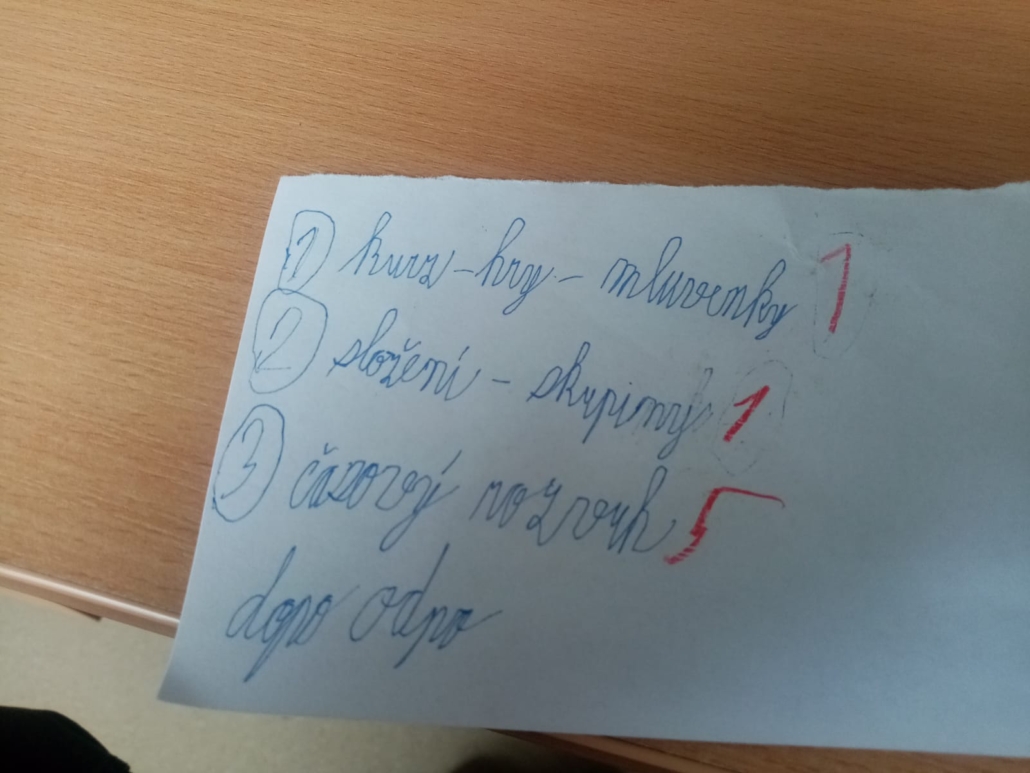 1 kurz - hry - mluvenky 1
2 složení - skupiny 1
3 časový rozvrh 5
dopo odpo